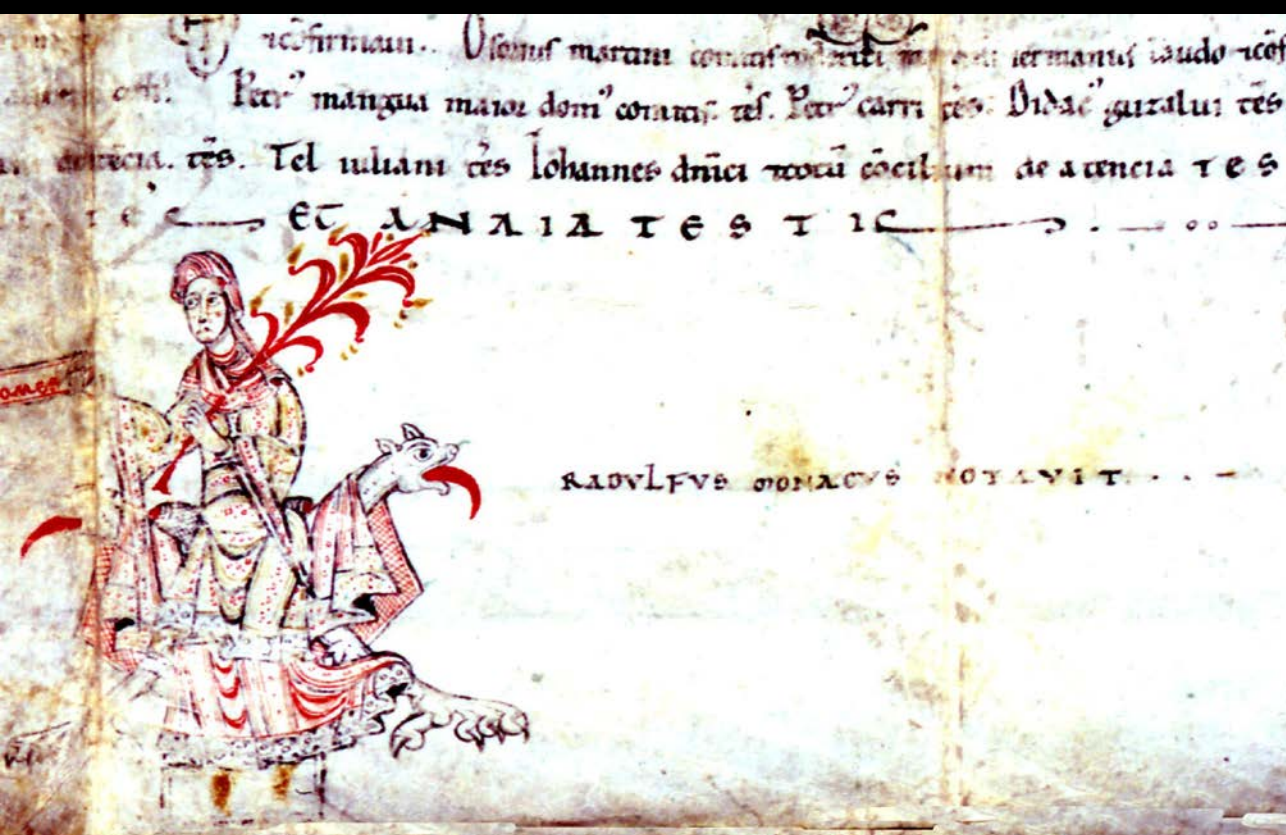 ⁊ c̄firmaui.. Osorius martini comitis roderici iermanus laudo ⁊ cōf
Petr᾽ mangua maior dom᾽ comitis. tes̄. Petr᾽ carri tēs. Didac᾽ gūzalui tēs
atēcia. tēs. Tel iuliani tēs Iohannes dn̄ici ⁊ totū cōcilium de atencia TES
TES ET ANAIA TESTIS
amen
RADVLFVS MONACVS NOTAVIT